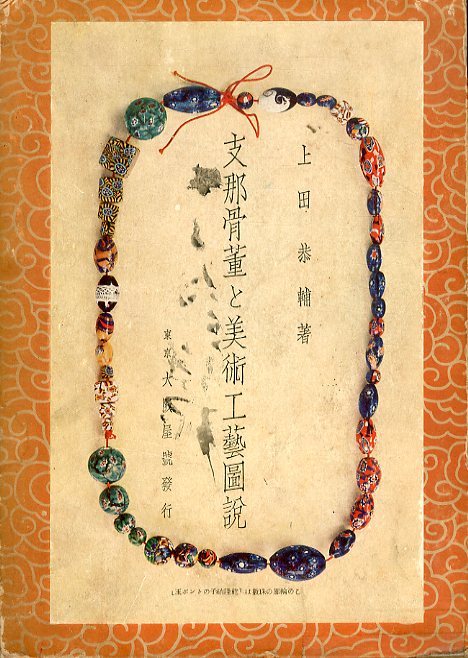 上田恭輔著
支那骨董と美術工藝圖説
東京 大阪屋號發行